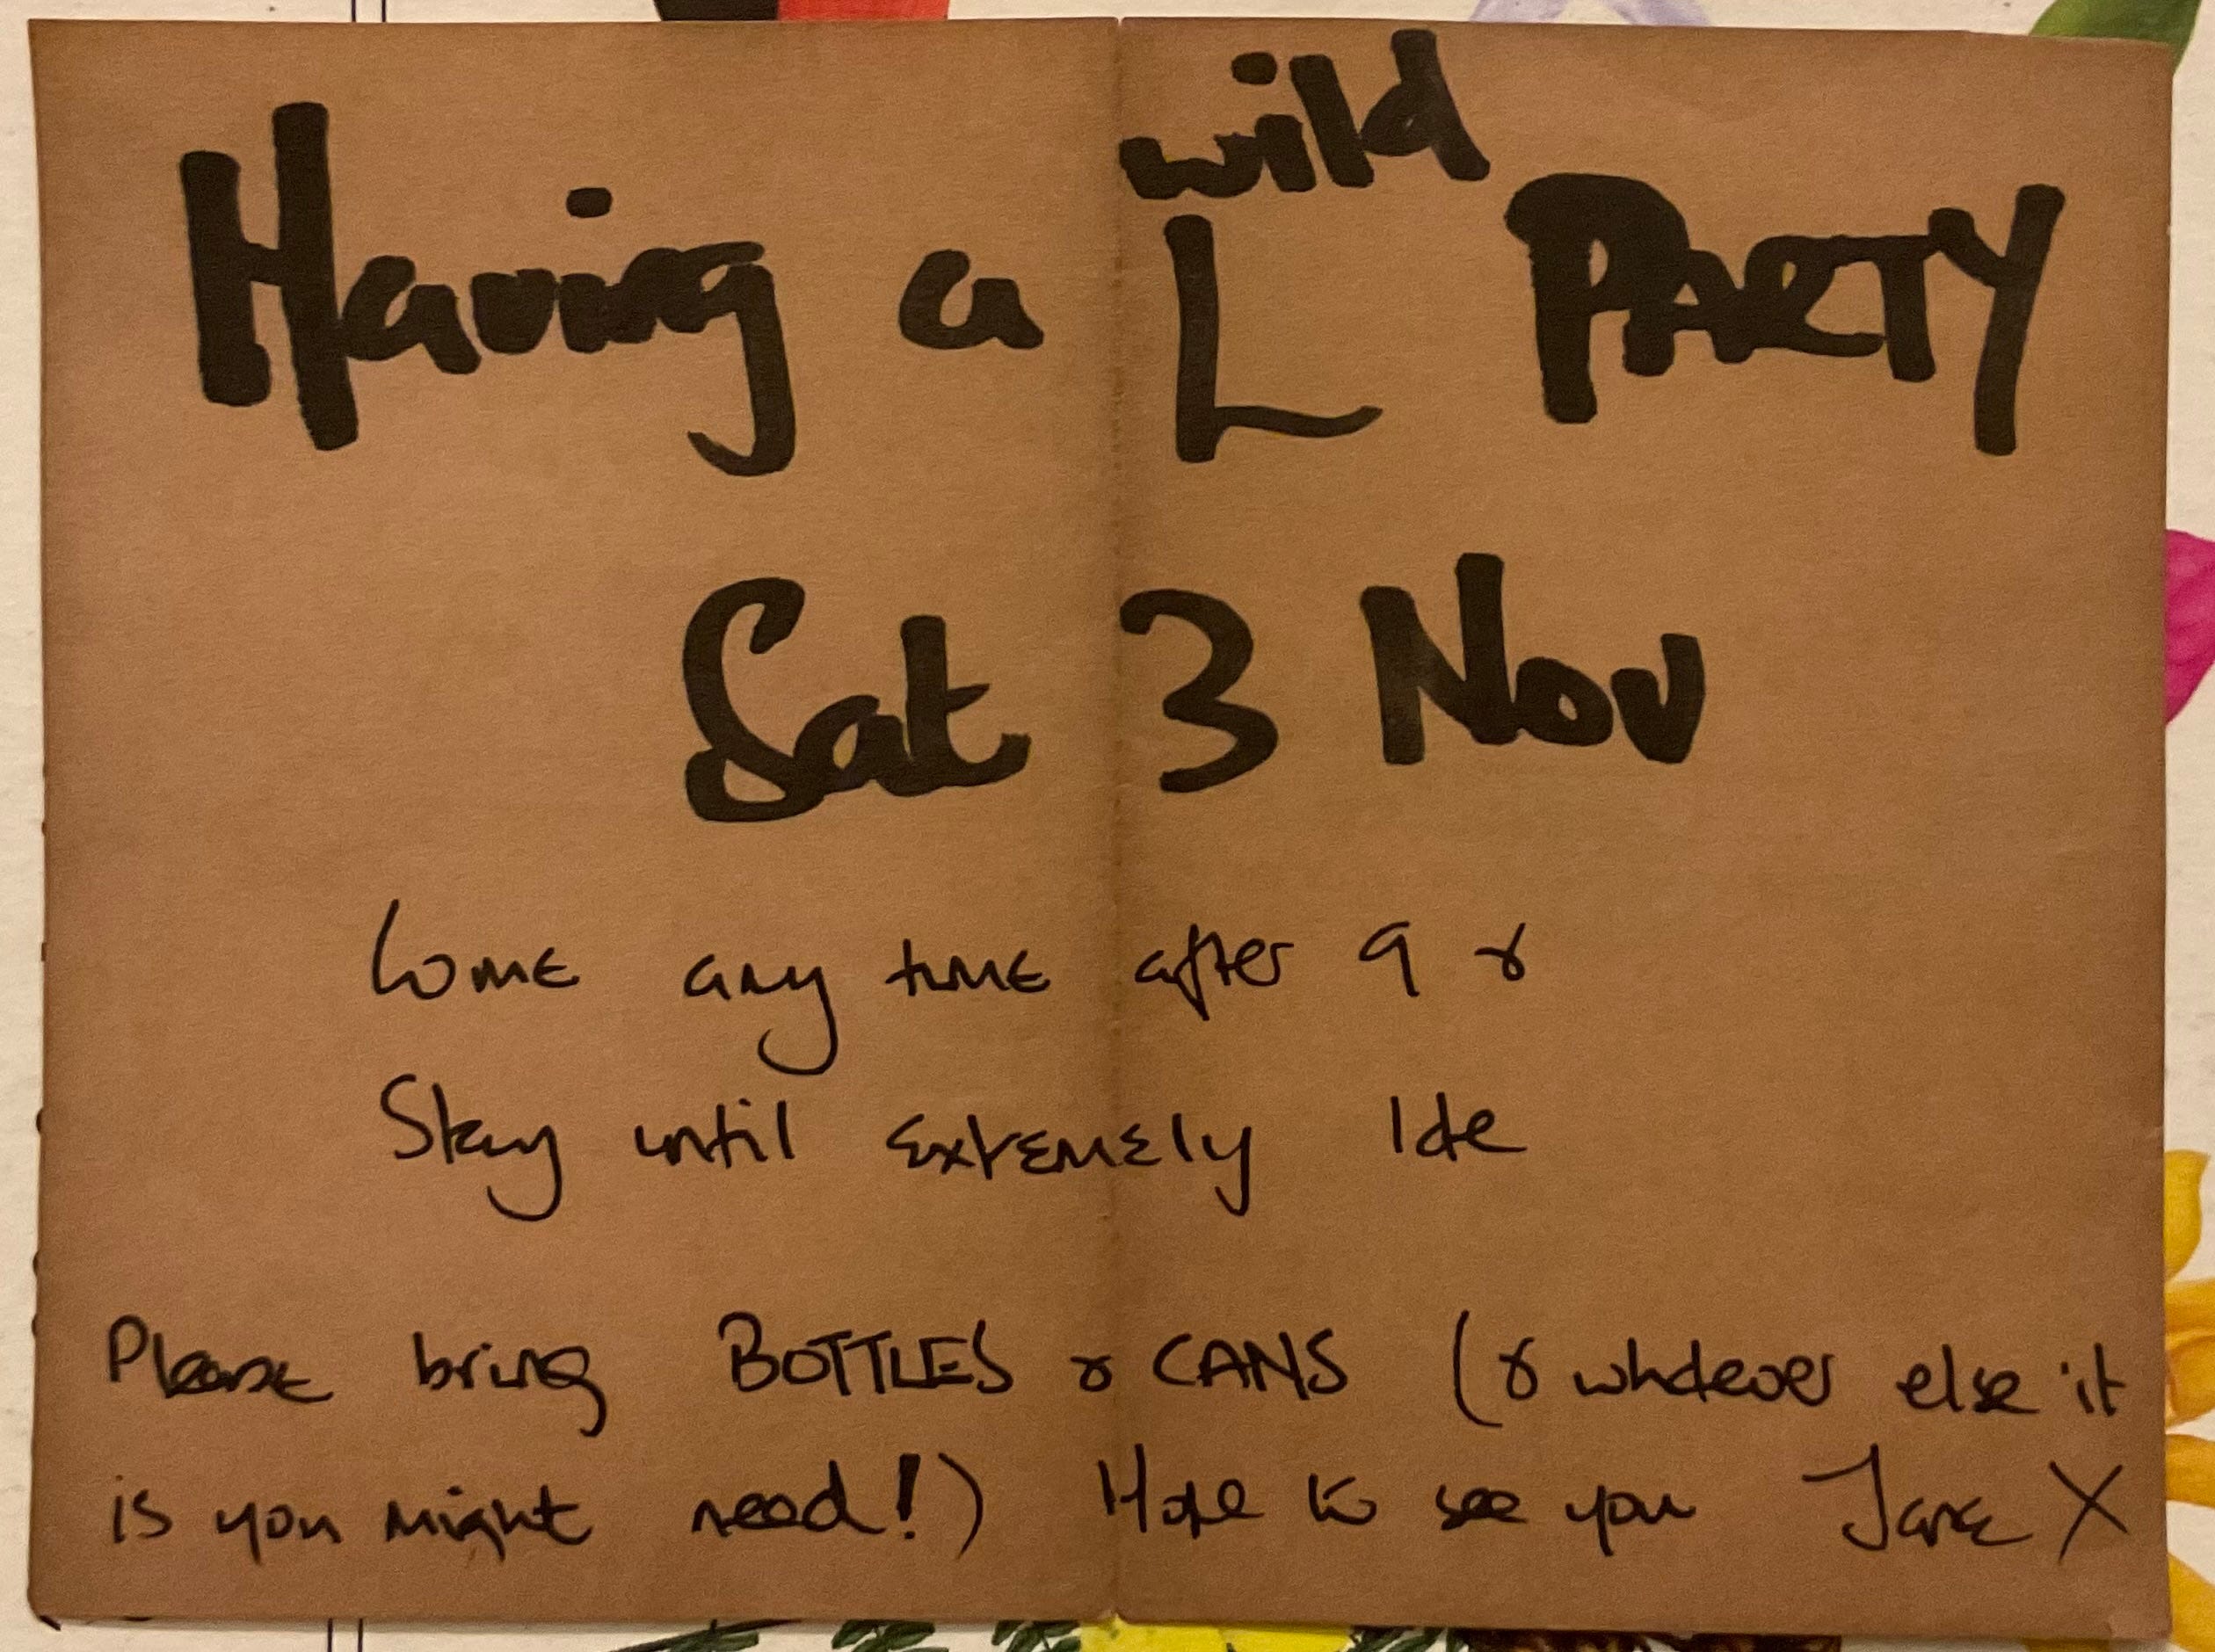 Having a wild PARTY
Sat 3 Nov
Come any time after 9 &
Stay until extremely late
Please bring BOTTLES & CANS (& whatever else it
is you might need!) Hope to see you Jane X